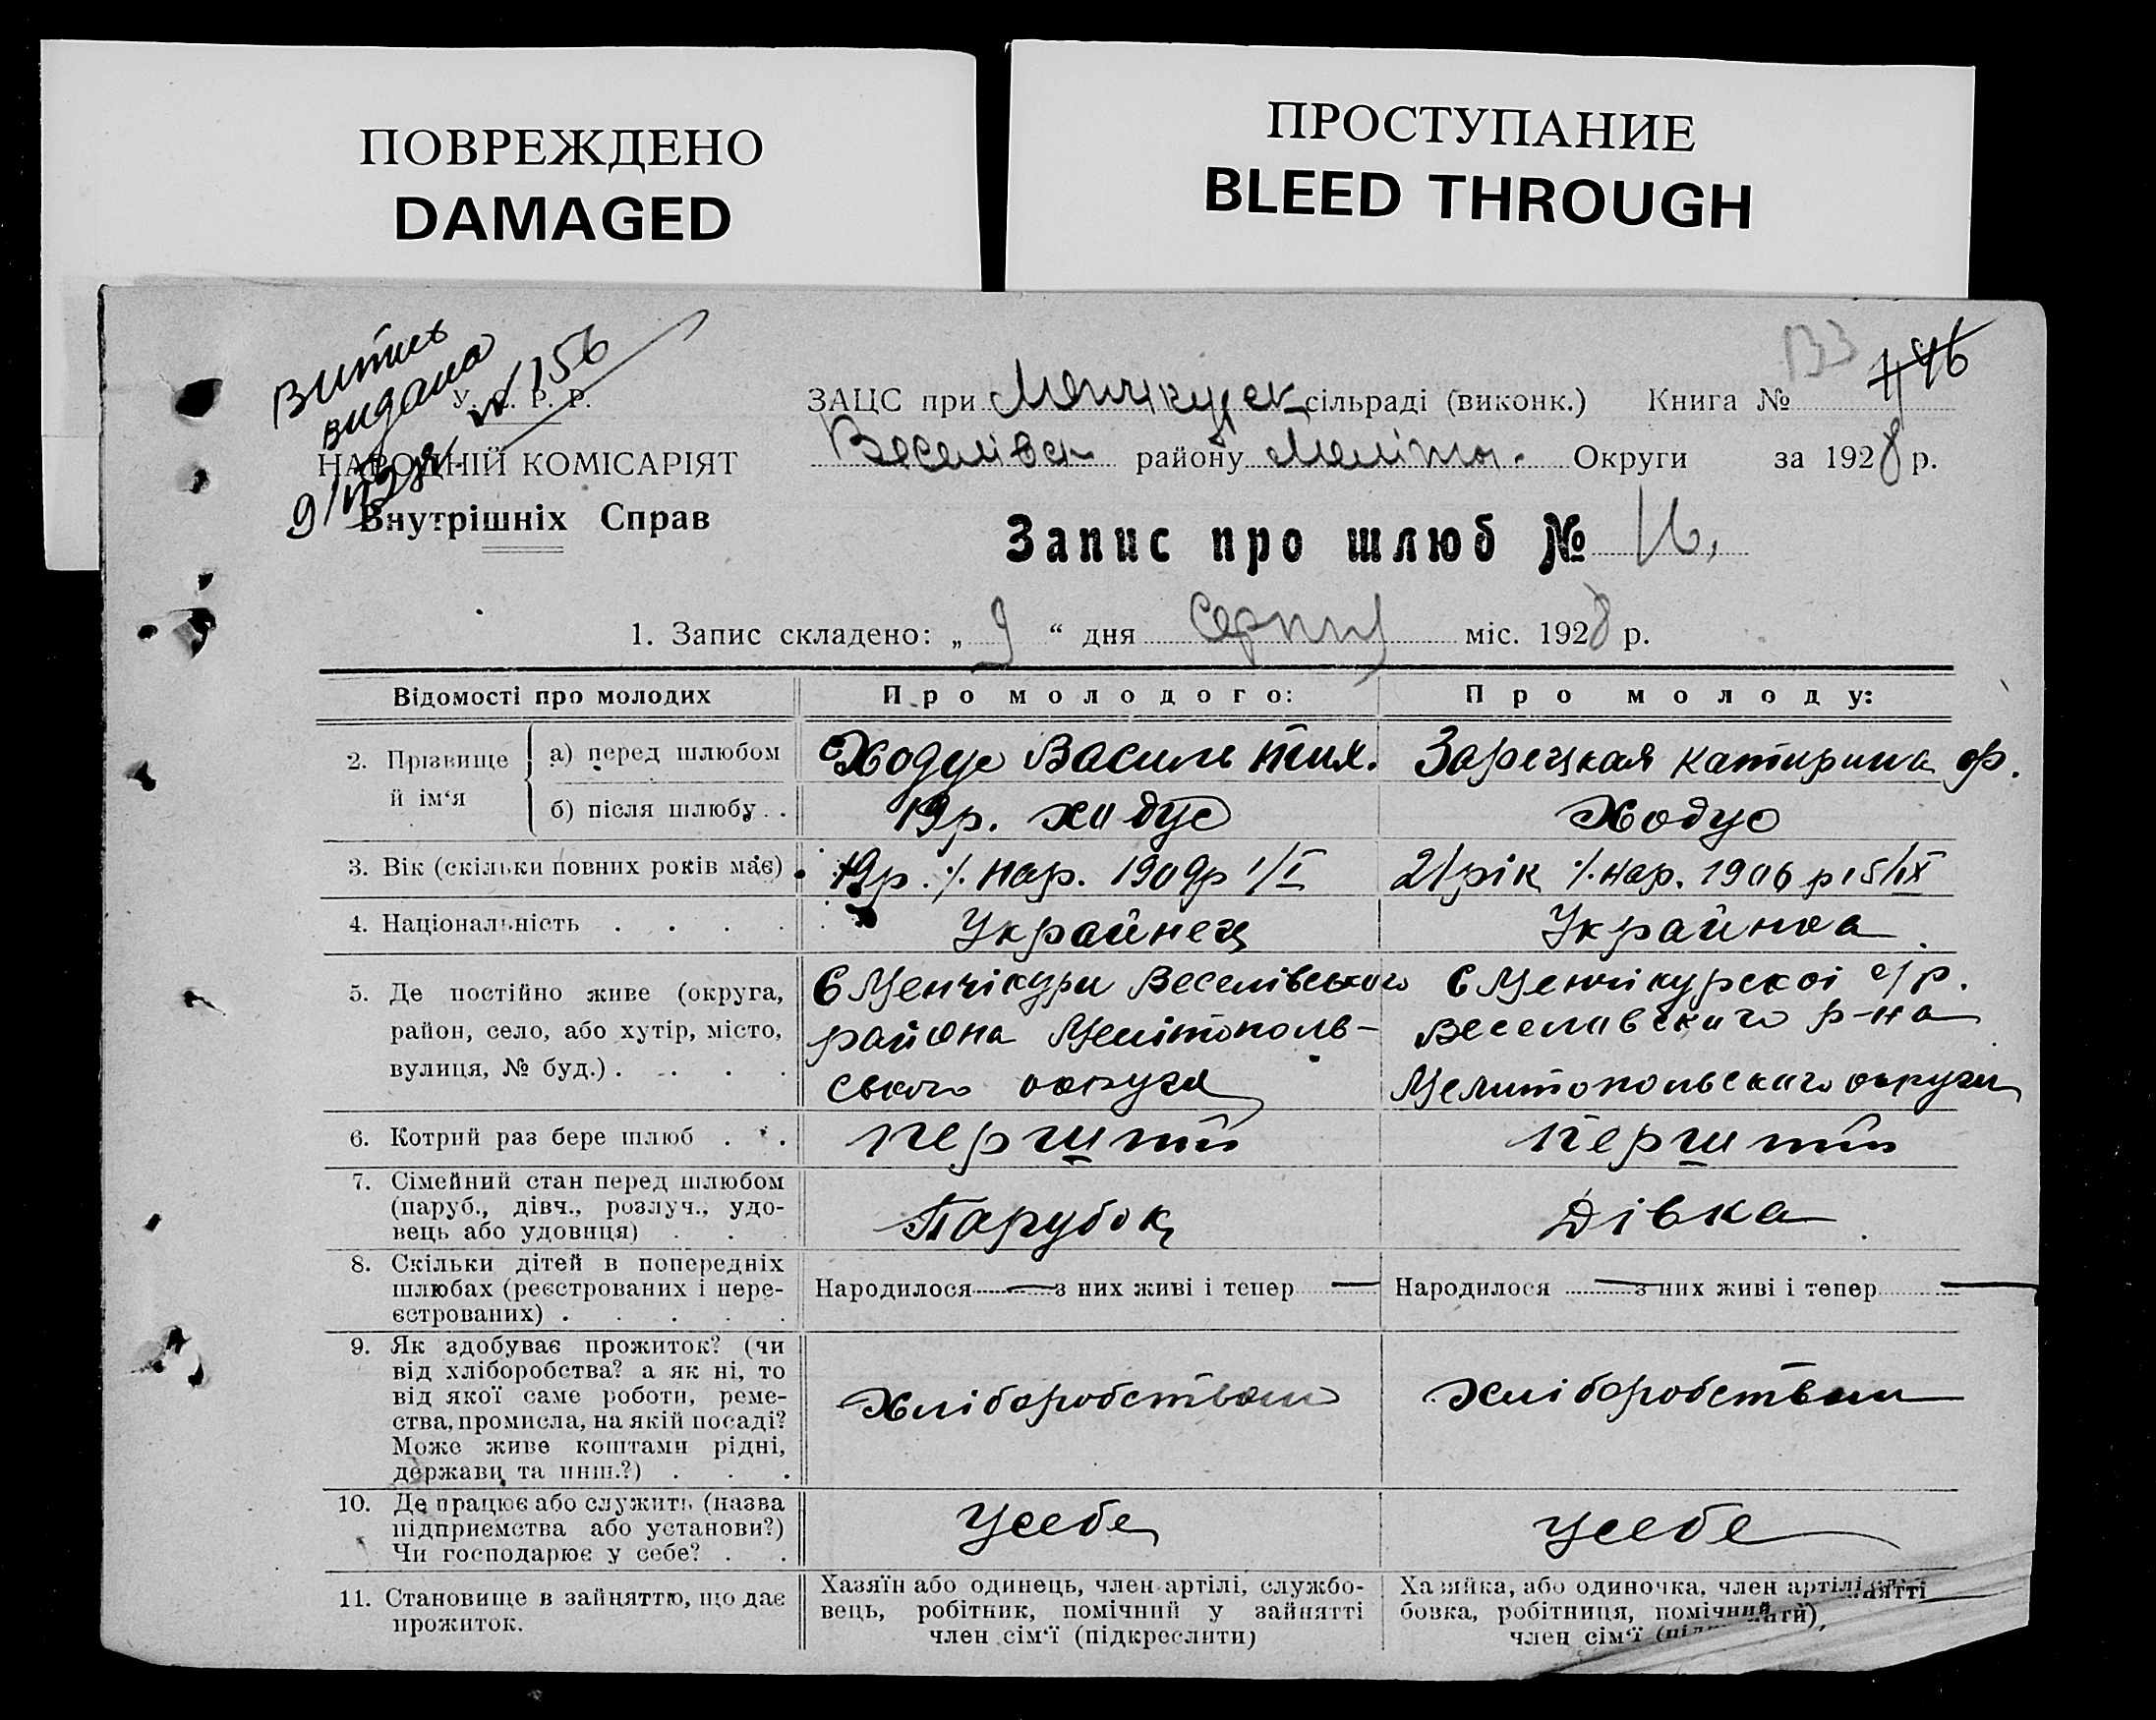 ПОВРЕЖДЕНО
DAMAGED
ПРОСТУПАНИЕ
BLEED THROUGH
Витяг
видана
№ 156
У. С. Р. Р.
НАРОДНІЙ КОМІСАРІЯТ
Внутрішніх Справ
ЗАЦС при Менчікурск сільраді (виконк.) Книга №
Веселівск району Меліто. Округи за 1928 р.
Запис про шлюб № 16.
1. Запис складено: „ 9 “ дня Серпня міс. 1928 р.
Відомості про молодих Про молодого: Про молоду:
2. Прізвище й ім‘я а) перед шлюбом Ходус Василь тих. Зарецкая Катирина ф.
б) після шлюбу . . 19р. Ходус Ходус
3. Вік (скільки повних років має) 19р. ⁒ нар. 1909р 1/I 21 рік ⁒ нар. 1906 р 15/IX
4. Національність . . . . Украйнец Украйнка
5. Де постійно живе (округа, С Менчікури Веселівського С Менчікурскоі с/р.
район, село, або хутір, місто, района Мелітополь- Веселивскиго р-на
вулиця, № буд.) . . . . . ського округа Мелитопольскиго округи
6. Котрий раз бере шлюб . . . перший перший
7. Сімейний стан перед шлюбом
(паруб., дівч., розлуч., удо- Парубок Дівка
вець або удовиця) . . .
8. Скільки дітей в попередніх
шлюбах (реєстрованих і нере- Народилося — з них живі і тепер — Народилося — з них живі і тепер —
єстрованих) . . . . .
9. Як здобуває прожиток? (чи
від хліборобства? а як ні, то
від якої саме роботи, реме- Хліборобством Хліборобством
ства, промисла, на якій посаді?
Може живе коштами рідні,
держави та инш.?) . . .
10. Де працює або служить (назва
підприємства або установи?) Усебе Усебе
Чи господарює у себе? . .
11. Становище в зайняттю, що дає Хазяїн або одинець, член артілі, службо- Хазяйка, або одиночка, член артілі
прожиток. вець, робітник, помічний у зайнятті бовка, робітниця, помічний
член сім‘ї (підкреслити) член сім‘ї